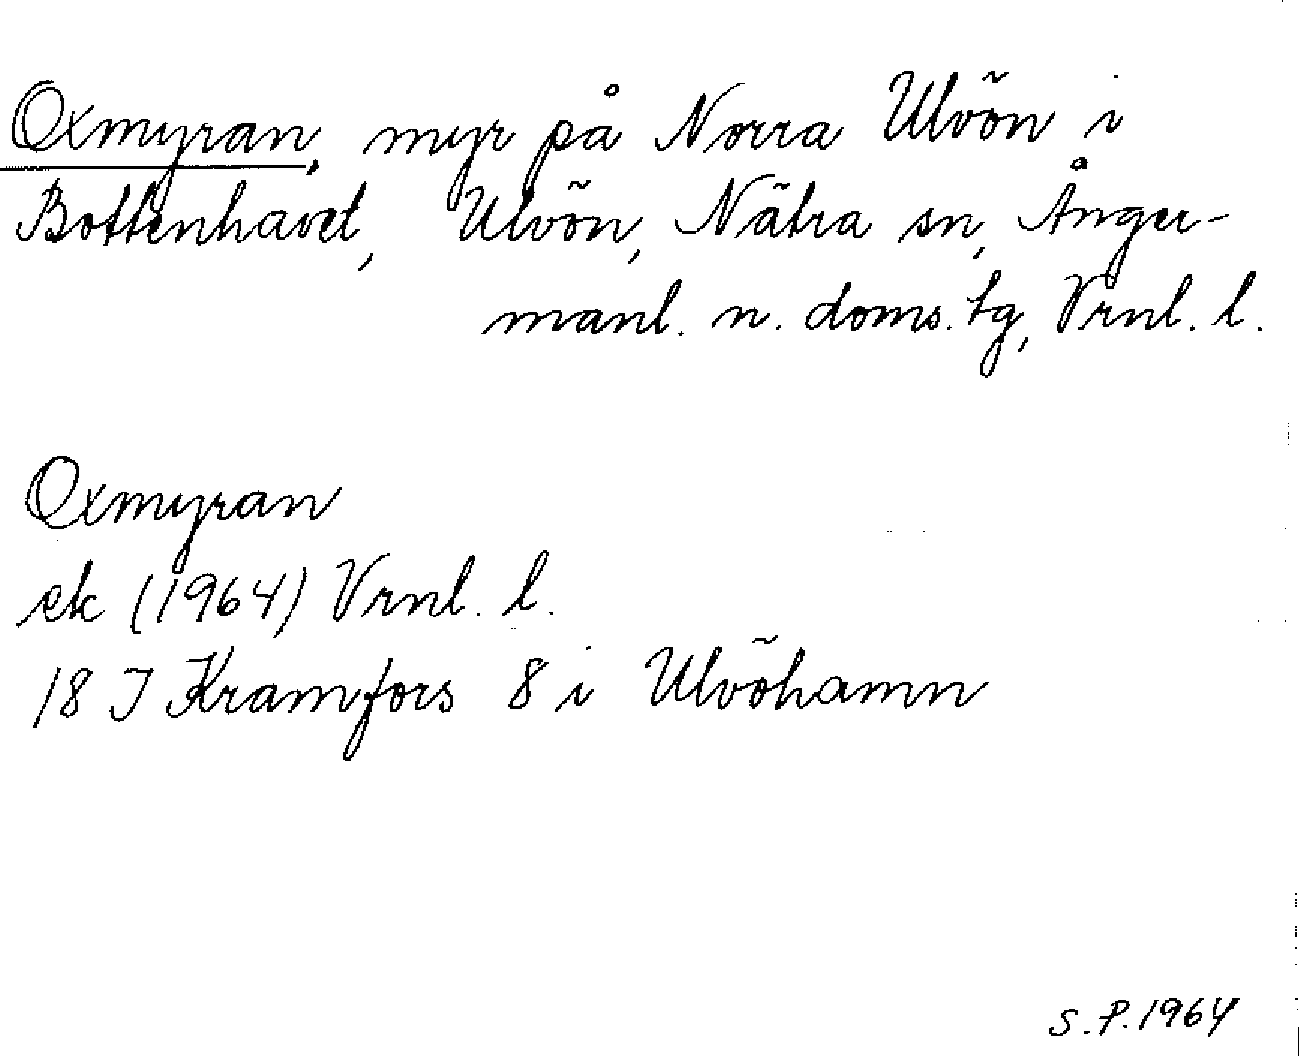 Oxmyran, myr på Norra Ulvön i
Bottenhavet, Ulvön, Nätra sn, Ånger-
manl. n. doms. tg, Vrnl. l.
Oxmyran
ek (1964) Vrnl. l.
18 J Kramfors 8 i Ulvöhamn
S.P. 1964